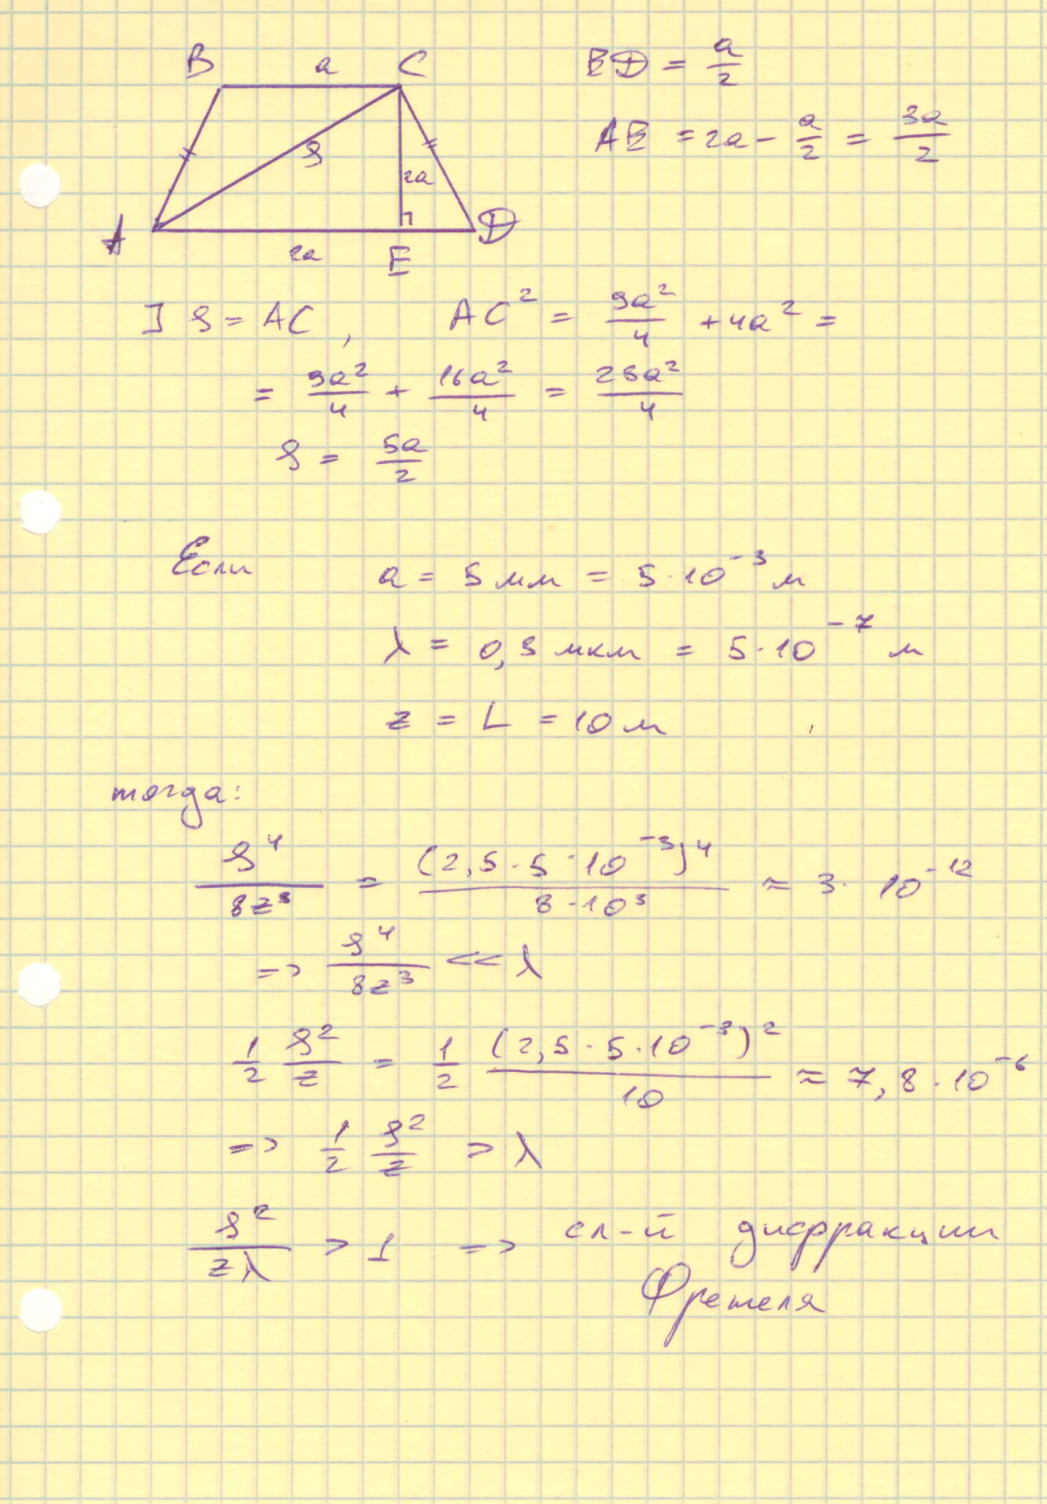 B a C
ED = a/2
AE = 2a - a/2 = 3a/2
ρ
2a
A 2a E D
] ρ = AC, AC² = 9a²/4 + 4a² =
= 9a²/4 + 16a²/4 = 25a²/4
ρ = 5a/2
Если a = 5 мм = 5·10⁻³ м
λ = 0,5 мкм = 5·10⁻⁷ м
z = L = 10 м
тогда:
ρ⁴/8z³ = (2,5·5·10⁻³)⁴/8·10³ ≈ 3·10⁻¹²
=> ρ⁴/8z³ << λ
1/2 ρ²/z = 1/2 (2,5·5·10⁻³)²/10 ≈ 7,8·10⁻⁶
=> 1/2 ρ²/z > λ
ρ²/zλ > 1 => сл-й дифракции
Френеля